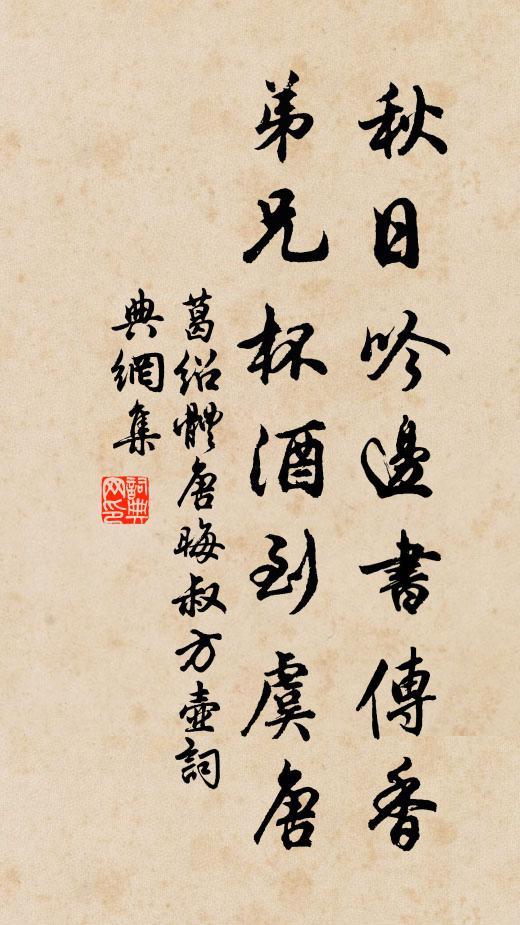 秋日吟邊書傳香
弟兄杯酒到虞唐
葛紹體唐晦叔方壺詞
典網集
詞典網印